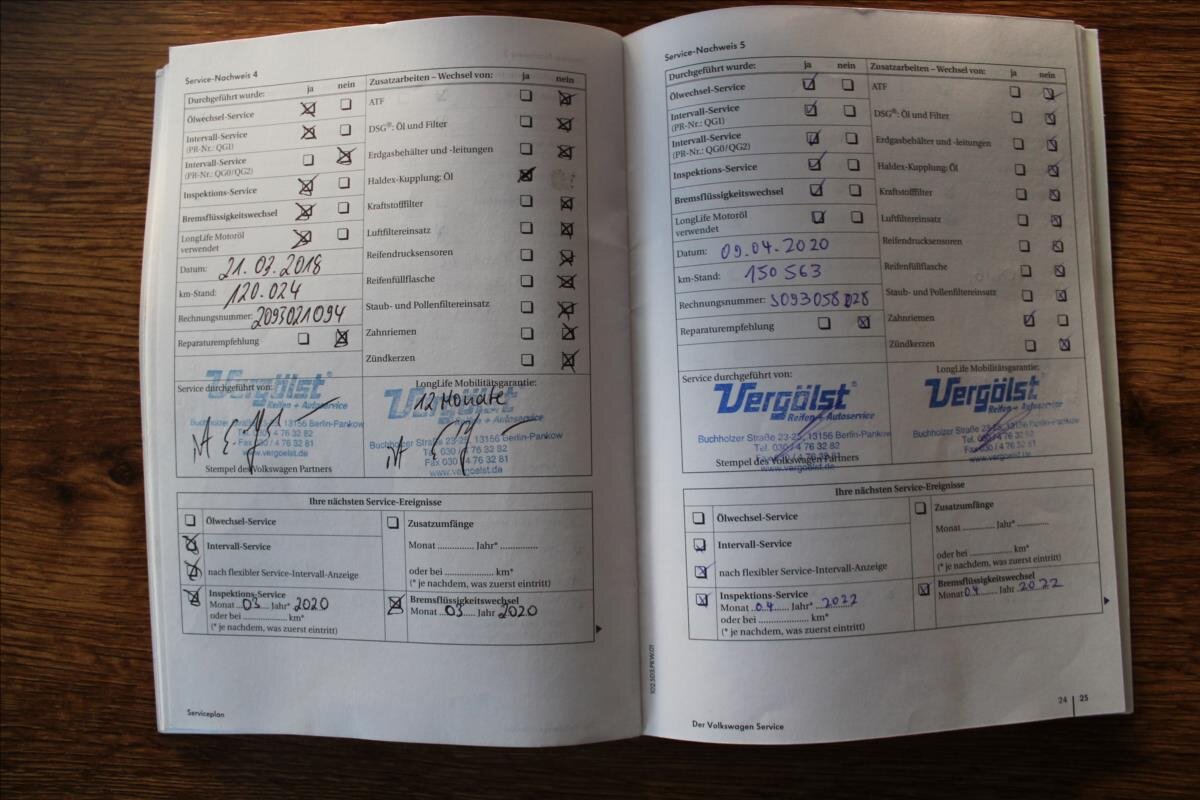 Service-Nachweis 4
Durchgeführt wurde: ja nein
Ölwechsel-Service
Intervall-Service
(PR-Nr.: QG1)
Intervall-Service
(PR-Nr.: QG0/QG2)
Inspektions-Service
Bremsflüssigkeitswechsel
LongLife Motoröl
verwendet
Datum: 21.03.2018
km-Stand: 120.024
Rechnungsnummer: 2093021094
Reparaturempfehlung
Zusatzarbeiten – Wechsel von: ja nein
ATF
DSG®: Öl und Filter
Erdgasbehälter und -leitungen
Haldex-Kupplung: Öl
Kraftstofffilter
Luftfiltereinsatz
Reifendrucksensoren
Reifenfüllflasche
Staub- und Pollenfiltereinsatz
Zahnriemen
Zündkerzen
Service durchgeführt von:
Vergölst
Reifen + Autoservice
Buchholzer Straße 23-25, 13156 Berlin-Pankow
Tel. 030 / 4 76 32 82
Fax 030 / 4 76 32 81
Stempel des Volkswagen Partners
LongLife Mobilitätsgarantie:
12 Monate
Vergölst
Reifen + Autoservice
Buchholzer Straße 23-25, 13156 Berlin-Pankow
Tel. 030 / 4 76 32 82
Fax 030 / 4 76 32 81
www.vergoelst.de
Ihre nächsten Service-Ereignisse
Ölwechsel-Service
Intervall-Service
nach flexibler Service-Intervall-Anzeige
Inspektions-Service
Monat 03 Jahr* 2020
oder bei km*
(* je nachdem, was zuerst eintritt)
Zusatzumfänge
Monat Jahr*
oder bei km*
(* je nachdem, was zuerst eintritt)
Bremsflüssigkeitswechsel
Monat 03 Jahr 2020
Serviceplan
Service-Nachweis 5
Durchgeführt wurde: ja nein
Ölwechsel-Service
Intervall-Service
(PR-Nr.: QG1)
Intervall-Service
(PR-Nr.: QG0/QG2)
Inspektions-Service
Bremsflüssigkeitswechsel
LongLife Motoröl
verwendet
Datum: 09.04.2020
km-Stand: 150 563
Rechnungsnummer: S093058028
Reparaturempfehlung
Zusatzarbeiten – Wechsel von: ja nein
ATF
DSG®: Öl und Filter
Erdgasbehälter und -leitungen
Haldex-Kupplung: Öl
Kraftstofffilter
Luftfiltereinsatz
Reifendrucksensoren
Reifenfüllflasche
Staub- und Pollenfiltereinsatz
Zahnriemen
Zündkerzen
Service durchgeführt von:
Vergölst
Reifen + Autoservice
Buchholzer Straße 23-25, 13156 Berlin-Pankow
Tel. 030 / 4 76 32 82
Fax 030 / 4 76 32 81
Stempel des Volkswagen Partners
www.vergoelst.de
LongLife Mobilitätsgarantie:
Vergölst
Reifen + Autoservice
Buchholzer Straße 23-25, 13156 Berlin-Pankow
Tel. 030 / 4 76 32 82
Fax 030 / 4 76 32 81
www.vergoelst.de
Ihre nächsten Service-Ereignisse
Ölwechsel-Service
Intervall-Service
nach flexibler Service-Intervall-Anzeige
Inspektions-Service
Monat 04 Jahr* 2022
oder bei km*
(* je nachdem, was zuerst eintritt)
Zusatzumfänge
Monat Jahr*
oder bei km*
(* je nachdem, was zuerst eintritt)
Bremsflüssigkeitswechsel
Monat 04 Jahr 2022
102.5D3.PKW.01
Der Volkswagen Service
24 | 25